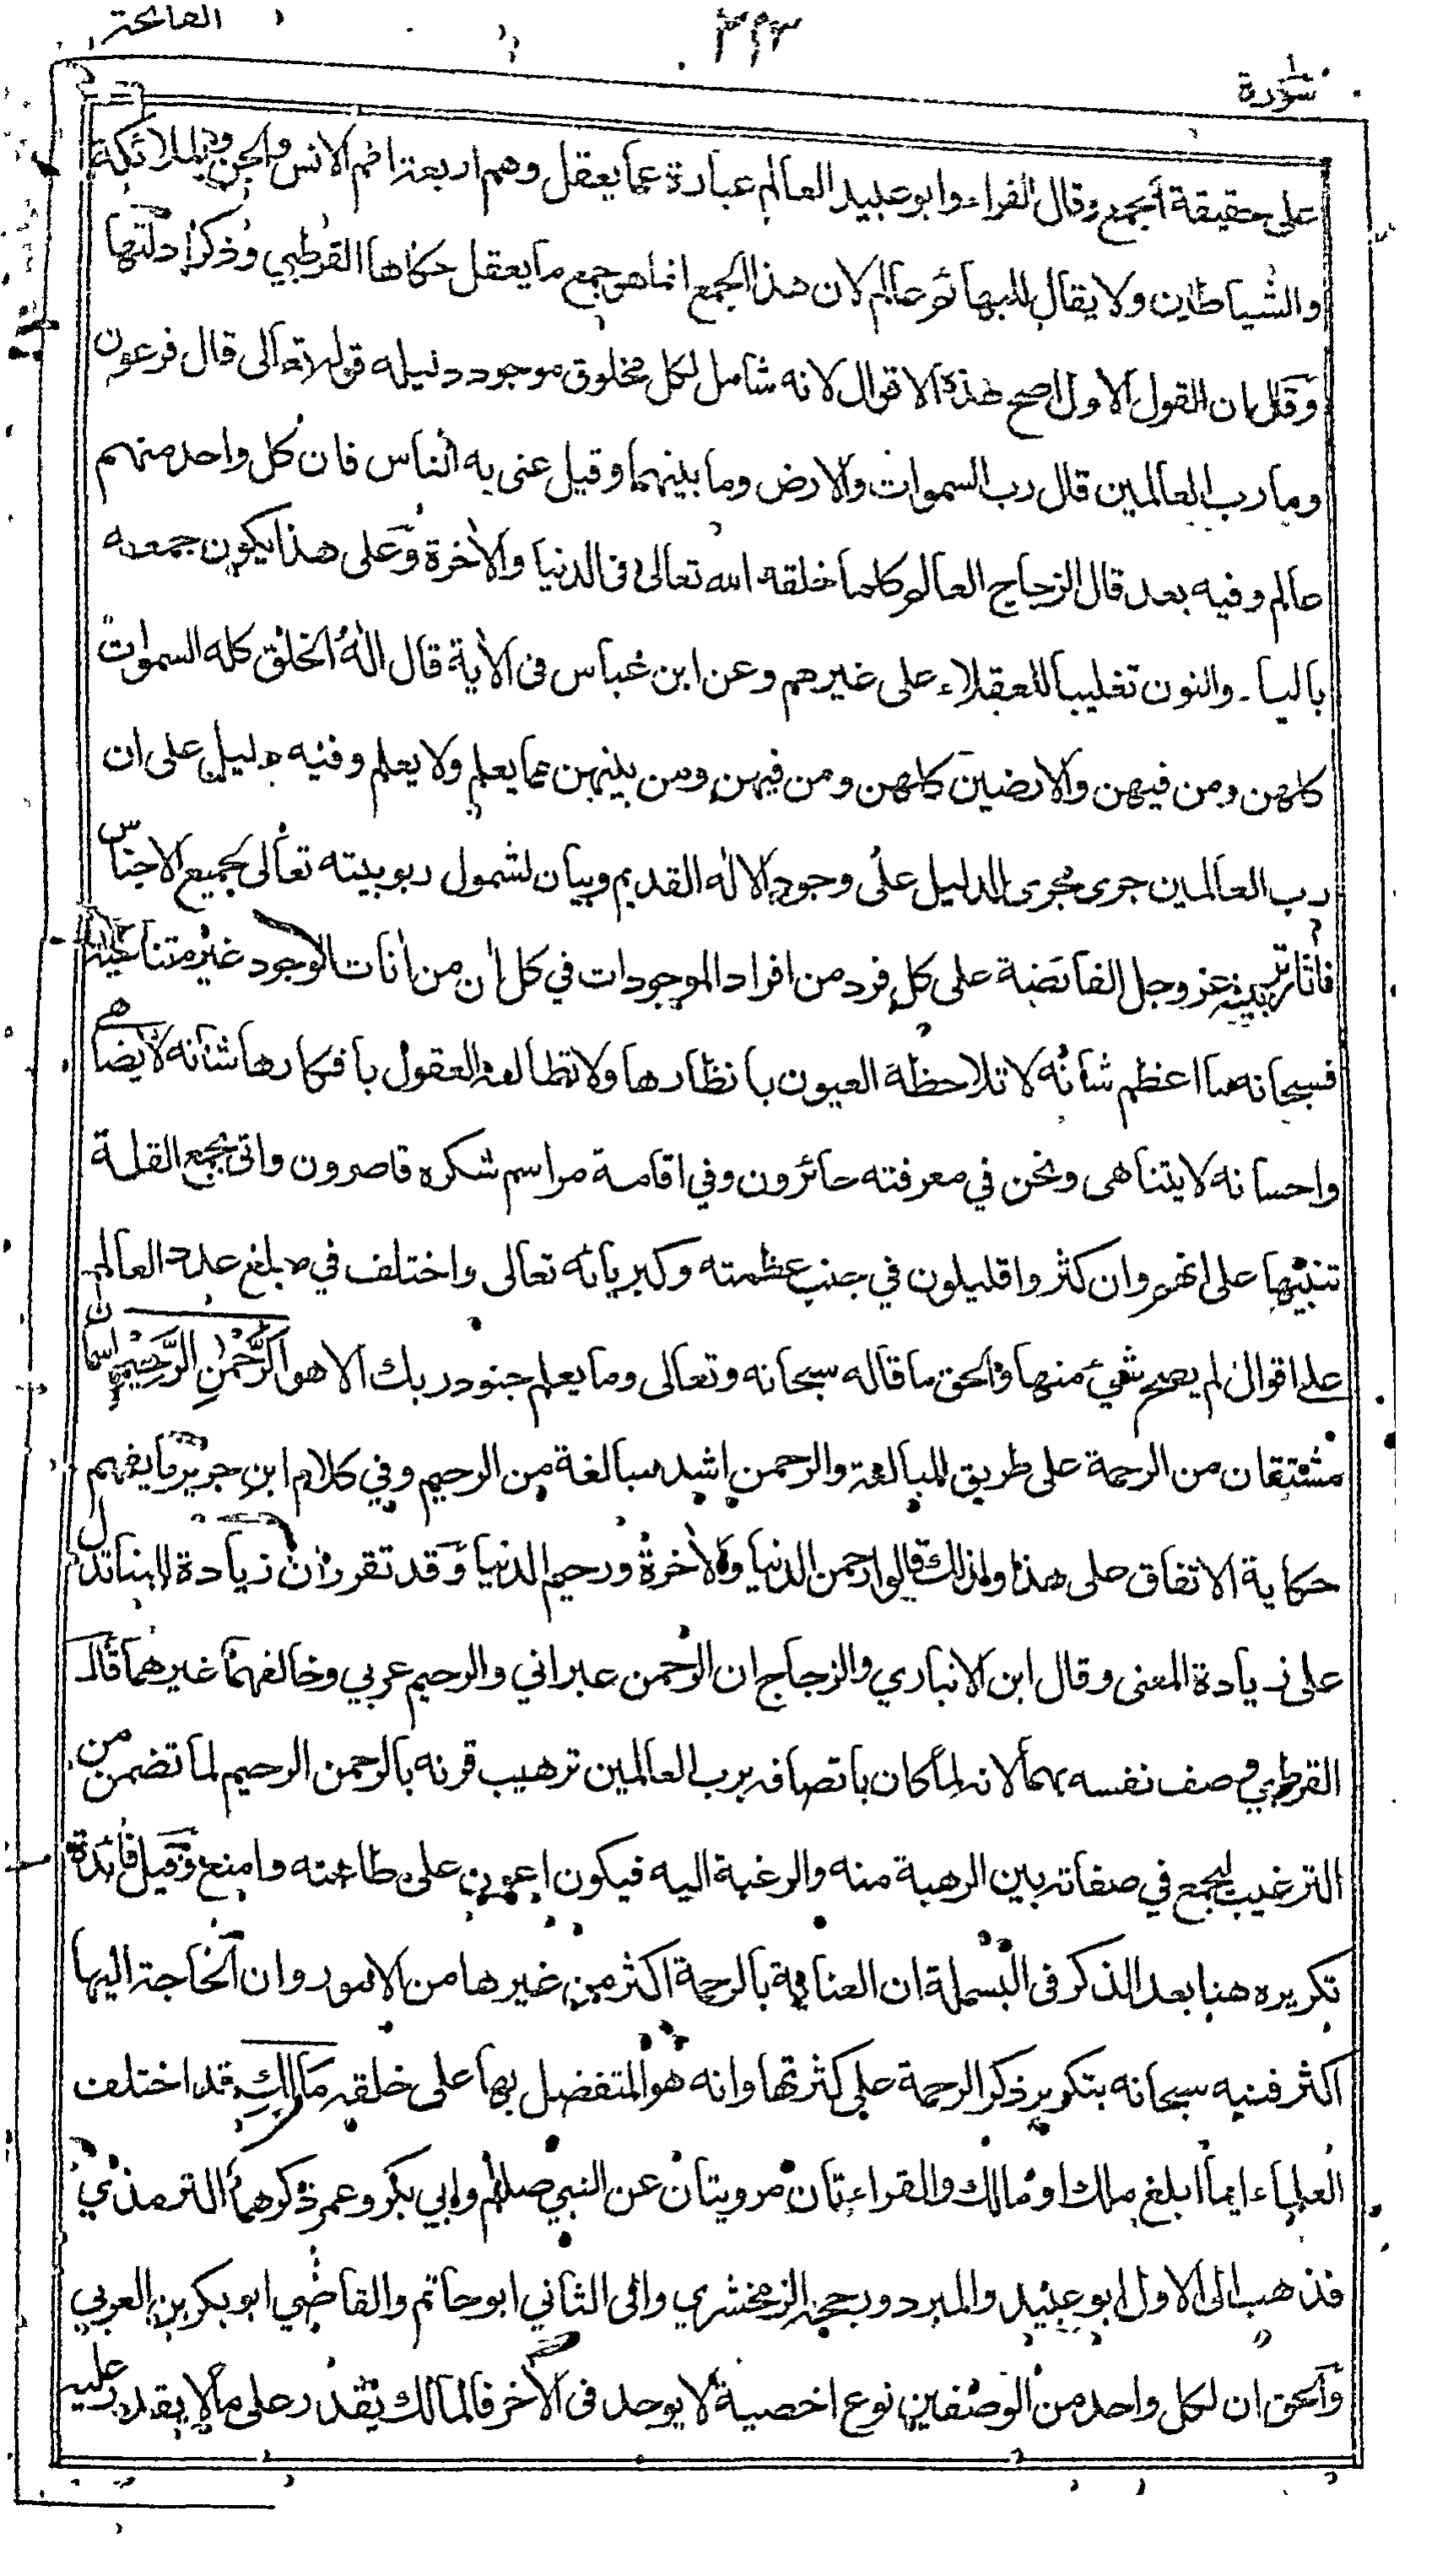 سورة
الفاتحة
على حقيقة الجمع وقال الفراء وابو عبيد العالم عبارة عما يعقل وهم اربعة امم الانس والجن والملائكة
والشياطين ولا يقال للبهائم عالم لان هذا الجمع انما هو جمع ما يعقل حكاها القرطبي وذكر ادلتها
وقال ان القول الاول اصح هذه الاقوال لانه شامل لكل مخلوق موجود دليله قوله تعالى قال فرعون
وما رب العالمين قال رب السموات والارض وما بينهما وقيل عنى به الناس فان كل واحد منهم
عالم وفيه بعد قال الزجاج العالم كلما خلقه الله تعالى فى الدنيا والاخرة وعلى هذا يكون جمعه
بالياء والنون تغليبا للعقلاء على غيرهم وعن ابن عباس فى الاية قال الله الخلق كله السموات
كلهن ومن فيهن والارضين كلهن ومن فيهن ومن بينهن مما يعلم ولا يعلم وفيه دليل على ان
رب العالمين جرى مجرى الدليل على وجود الاله القديم وبيان لشمول ربوبيته تعالى لجميع الاجناس
فاثار تربيته عز وجل الفائضة على كل فرد من افراد الموجودات في كل ان من انات الوجود غير متناهية
فسبحانه ما اعظم شانه لا تلاحظه العيون بانظارها ولا تطالعه العقول بافكارها شانه لا يضاهى
واحسانه لا يتناهى ونحن في معرفته حائرون وفي اقامة مراسم شكره قاصرون واتى بجمع القلة
تنبيها على انهم وان كثروا قليلون في جنب عظمته وكبريائه تعالى واختلف في مبلغ عدد العالم
على اقوال لم يصح شيء منها والحق ما قاله سبحانه وتعالى وما يعلم جنود ربك الا هو الرَّحْمٰنِ الرَّحِيْمِ اسمان
مشتقان من الرحمة على طريق المبالغة والرحمن اشد مبالغة من الرحيم وفي كلام ابن جرير ما يفهم
حكاية الاتفاق على هذا ولذلك قالوا رحمن الدنيا والاخرة ورحيم الدنيا وقد تقرر ان زيادة البنا تدل
على زيادة المعنى وقال ابن الانباري والزجاج ان الرحمن عبراني والرحيم عربي وخالفهما غيرهما قال
القرطبي وصف نفسه بهما لانه لما كان باتصافه برب العالمين ترهيب قرنه بالرحمن الرحيم لما تضمن من
الترغيب ليجمع في صفاته بين الرهبة منه والرغبة اليه فيكون اعون على طاعته وامنع وقيل فائدة
تكريره هنا بعد الذكر فى البسملة ان العناية بالرحمة اكثر من غيرها من الامور وان الحاجة اليها
اكثر فنبه سبحانه بتكرير ذكر الرحمة على كثرتها وانه هو المتفضل بها على خلقه مَالِكِ قد اختلف
العلماء ايما ابلغ ملك او مالك والقراءتان مرويتان عن النبي صللم وابي بكر وعمر ذكرهما الترمذي
فذهب الى الاول ابو عبيد والمبرد ورجحه الزمخشري والى الثاني ابو حاتم والقاضي ابو بكر بن العربي
والحق ان لكل واحد من الوصفين نوع اخصية لا يوجد فى الاخر فالمالك يقدر على ما لا يقدر عليه